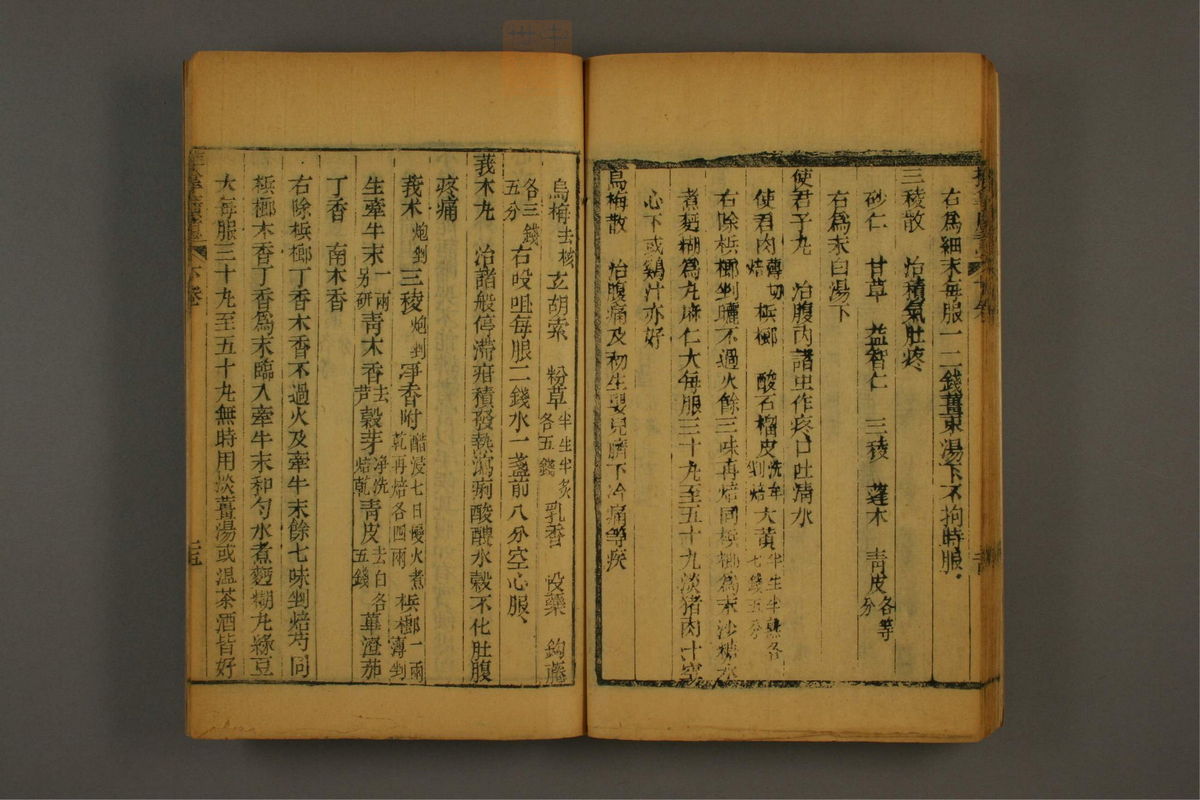 右爲細末每服一二錢薑棗湯下不拘時服
三稜散　治積氣肚疼
砂仁　甘草　益智仁　三稜　蓬木　靑皮各等分
右爲末白湯下
使君子丸　治腹內諸虫作疼口吐淸水
使君肉薄切焙　檳榔　酸石榴皮洗剉焙大黃半生半熟各七錢五分
右除檳榔剉曬不過火餘三味再焙同檳榔爲末沙糖水
煮麪糊爲丸麻仁大每服三十丸至五十丸淡猪肉汁空
心下或鷄汁亦好
烏梅散　治腹痛及初生嬰兒臍下冷痛等疾
烏梅去核玄胡索　粉草半生半炙各五錢乳香　沒藥　鈎藤
各三錢五分右㕮咀每服二錢水一盞煎八分空心服
莪木丸　治諸般停滯疳積發熱瀉痢酸醴水穀不化肚腹
疼痛
莪术炮剉三稜炮剉淨香附醋浸七日慢火煮乾再焙各四兩檳榔一兩薄剉
生牽牛末一兩別研靑木香去芦穀芽淨洗焙乾靑皮去白各五錢蓽澄茄
丁香　南木香
右除檳榔丁香木香不過火及牽牛末餘七味剉焙芍同
檳榔木香丁香爲末臨入牽牛末和勻水煮麪糊丸綠豆
大每服三十丸至五十丸無時用淡薑湯或温茶酒皆好